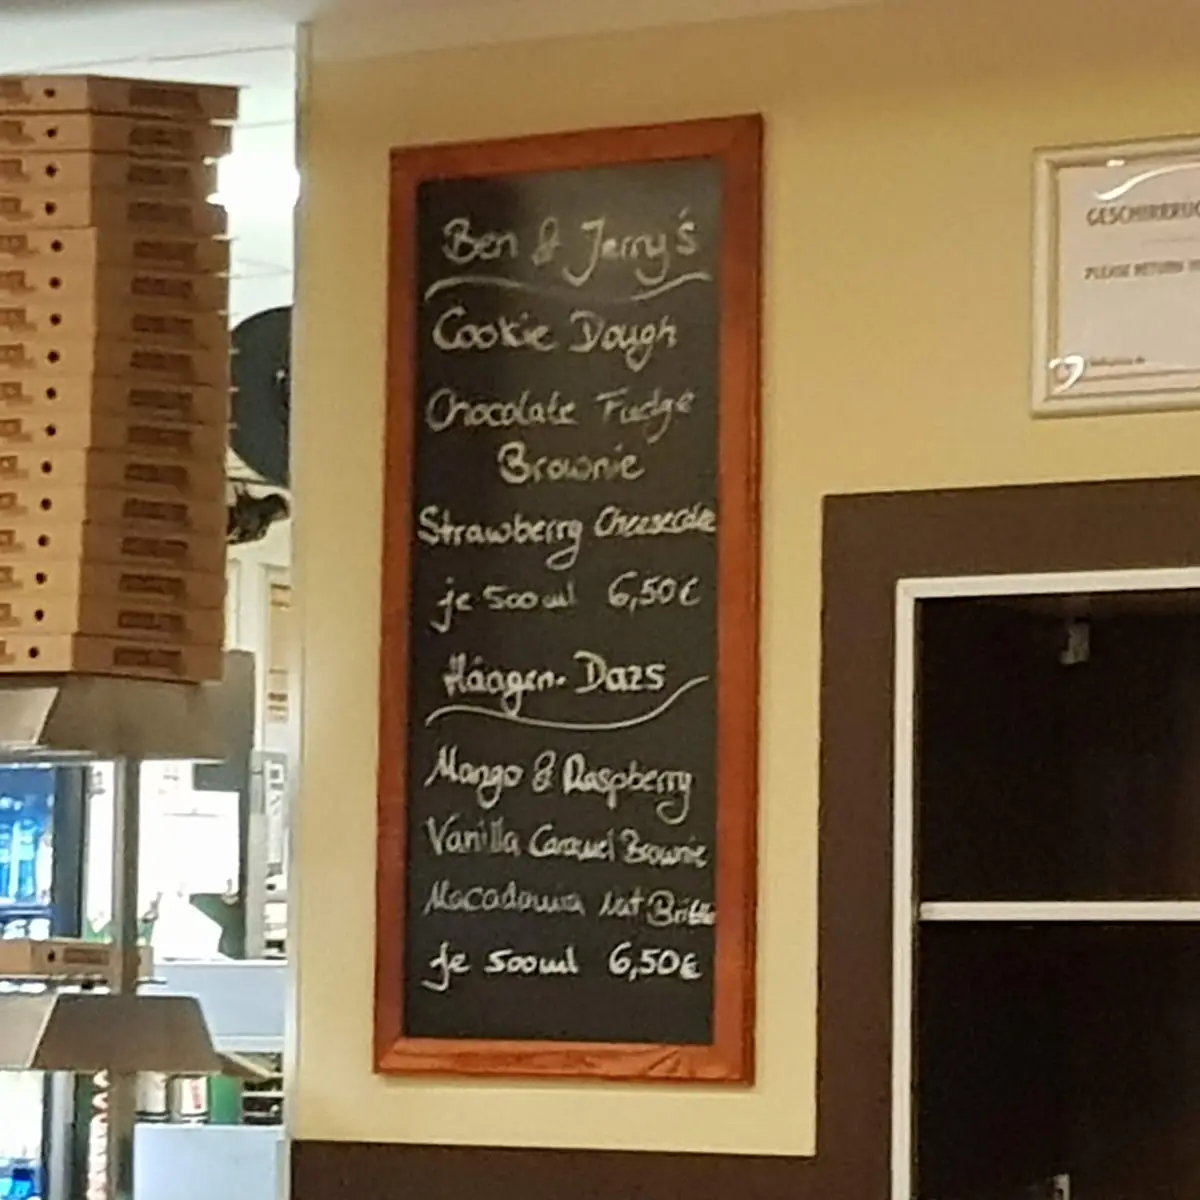 Ben & Jerry's
Cookie Dough
Chocolate Fudge
Brownie
Strawberry Cheesecake
je 500ml 6,50€
Häagen-Dazs
Mango & Raspberry
Vanilla Caramel Brownie
Macadamia Nut Brittle
je 500ml 6,50€
PLEASE RETURN